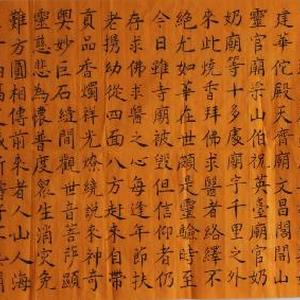 建華佗殿天齊廟文昌閣閭山
靈官廟梁山伯祝英臺廟官奶
奶廟等十多處廟宇千里之外
來此燒香拜佛求醫者絡繹不
絕尤如華在世頗是靈驗時至
今日雖寺廟被毀但信仰者仍
存求佛求醫之心每逢年節扶
老攜幼從四面八方赶來自帶
貢品香燭祥光燎繞說來神奇
輿妙巨石縫間觀世音菩薩顯
靈慈悲為懷普度眾生消灾免
難方圓相傳前來者人山人海